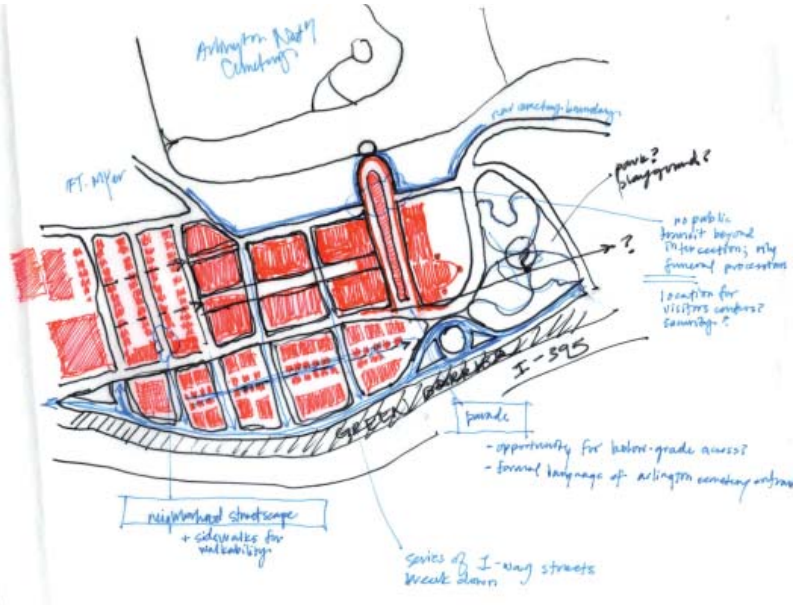 Arlington Nat'l
Cemetery
new cemetery boundary
FT. Myer
park?
playground?
?
no public
transit beyond
intersection; only
funeral processions
location for
visitors center?
security?
GREEN BARRIER
I-395
parade
- opportunity for below-grade access?
- formal language of arlington cemetery entran
neighborhood streetscape
+ sidewalks for
walkability
series of 1-way streets
break down